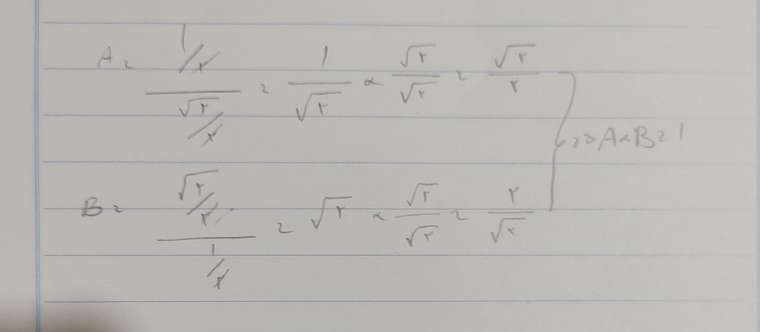 A = (۱/۲)/(√۲/۲) = ۱/√۲ × √۲/√۲ = √۲/۲
B = (√۲/۲)/(۱/۲) = √۲ × √۲/√۲ = ۲/√۲
=> A×B=۱